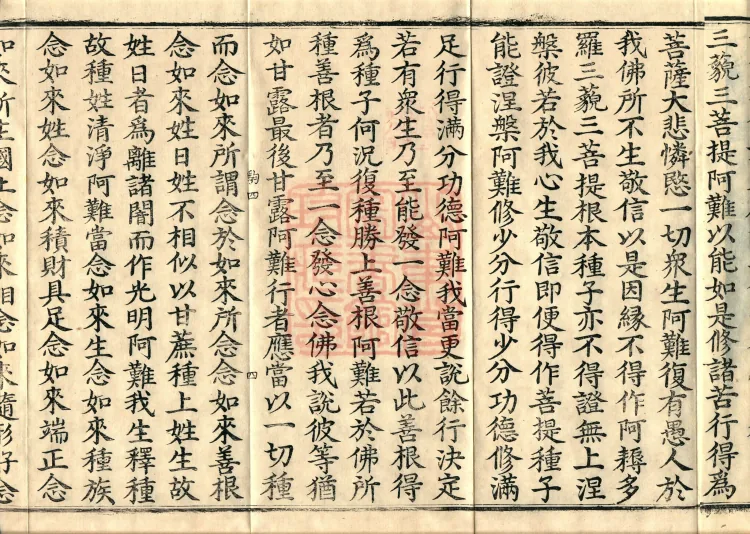 三藐三菩提阿難以能如是修諸苦行得爲
菩薩大悲憐愍一切衆生阿難復有愚人於
我佛所不生敬信以是因縁不得作阿耨多
羅三藐三菩提根本種子亦不得證無上涅
槃彼若於我心生敬信即便得作菩提種子
能證涅槃阿難修少分行得少分功德修滿
足行得滿分功德阿難我當更說餘行決定
若有衆生乃至能發一念敬信以此善根得
爲種子何況復種勝上善根阿難若於佛所
種善根者乃至一念發心念佛我說彼等猶
如甘露最後甘露阿難行者應當以一切種
四
而念如來所謂念於如來所念念如來善根
念如來姓日姓不相似以甘蔗種上姓生故
姓日者爲離諸闇而作光明阿難我生釋種
故種姓清淨阿難當念如來生念如來種族
念如來姓念如來積財具足念如來端正念
如來所生國土念如來相念如來隨形好念